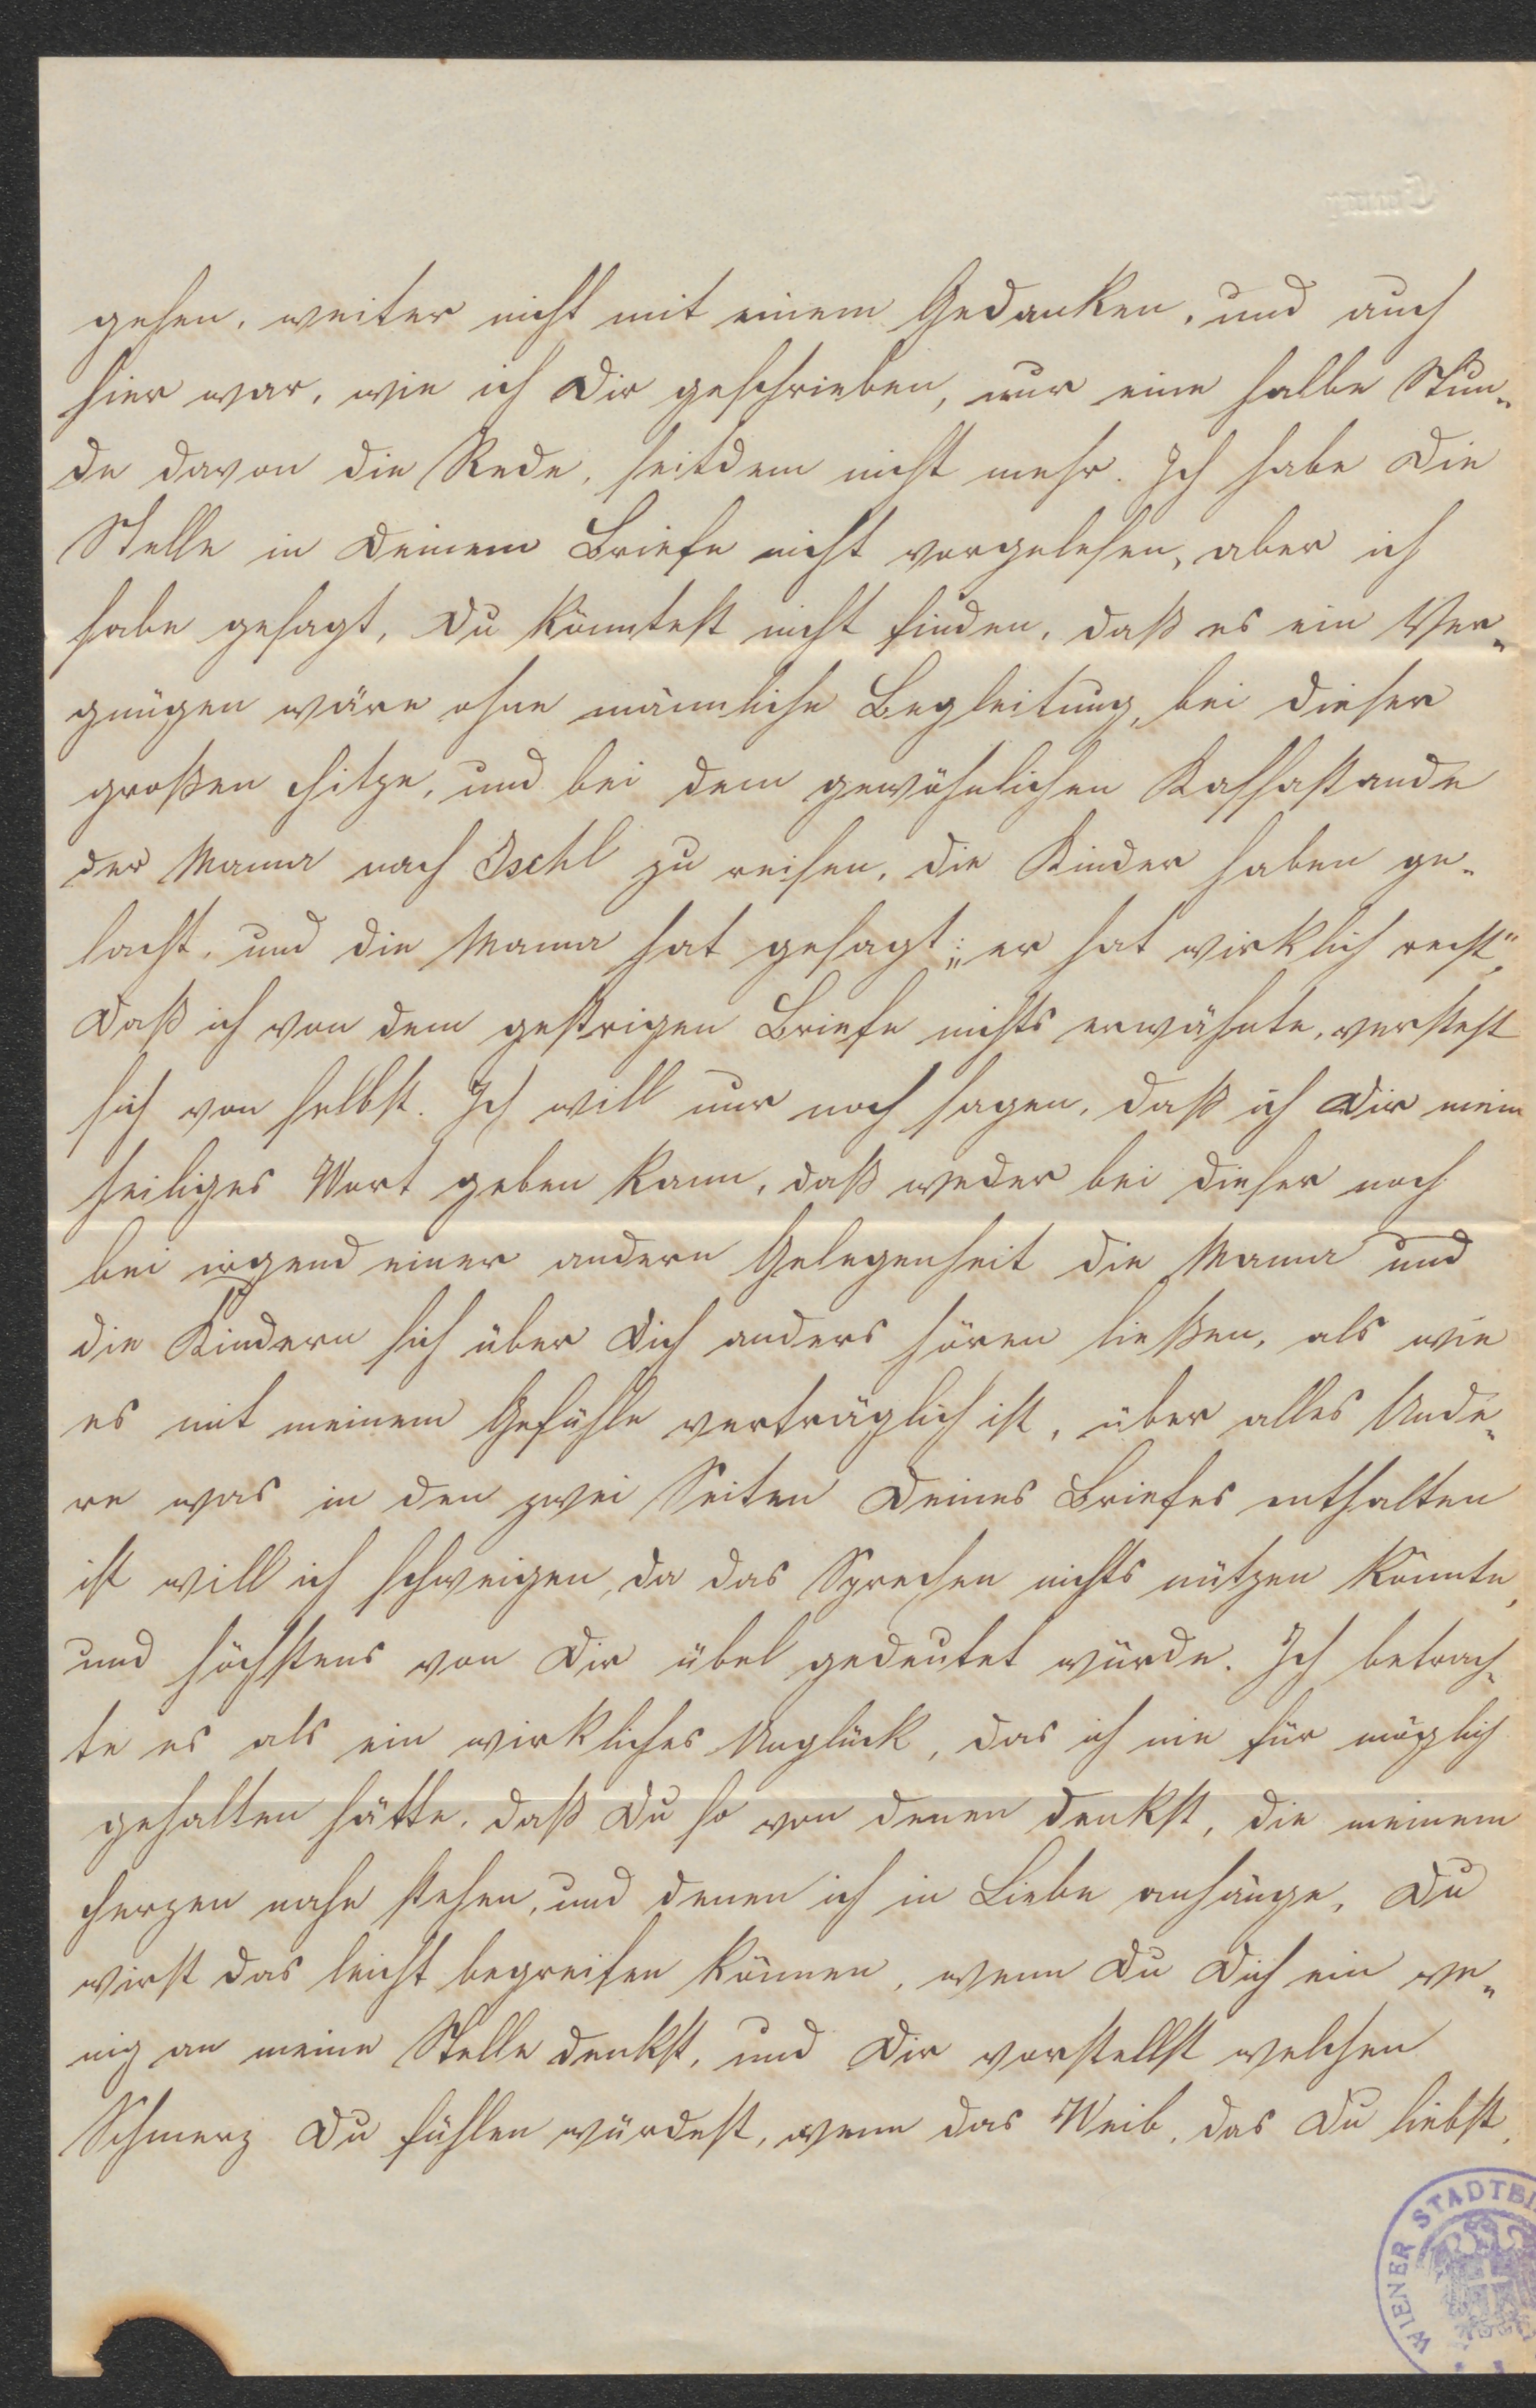 gehen, weiter nicht mit einem Gedanken, und auch
hier war, wie ich Dir geschrieben, nur eine halbe Stun-
de davon die Rede, seitdem nicht mehr. Ich habe die
Stelle in Deinem Briefe nicht vorgelesen, aber ich
habe gesagt, Du könntest nicht finden, daß es ein Ver-
gnügen wäre ohne männliche Begleitung, bei dieser
großen Hitze, und bei dem gewöhnlichen Kassastande
der Mama nach Ischl zu reisen, die Kinder haben ge-
lacht, und die Mama hat gesagt: „er hat wirklich recht“,
Daß ich von dem gestrigen Briefe nichts erwähnte, versteht
sich von selbst. Ich will nur noch sagen, daß ich Dir mein
heiliges Wort geben kann, daß weder bei dieser noch
bei irgend einer andern Gelegenheit die Mama und
die Kindern sich über Dich anders hören ließen, als wie
es mit meinem Gefühle verträglich ist, über alles Ande-
re was in den zwei Seiten Deines Briefes enthalten
ist will ich schweigen, da das Sprechen nichts nützen könnte,
und höchstens von Dir übel gedeutet würde. Ich betrach-
te es als ein wirkliches Unglück, das ich nie für möglich
gehalten hätte, daß Du so von denen denkst, die meinem
Herzen nahe stehen, und denen ich in Liebe anhänge. Du
wirst das leicht begreifen können, wenn Du Dich ein we-
nig an meine Stelle denkst, und Dir vorstellst welchen
Schmerz Du fühlen würdest, wenn das Weib, das Du liebst,
WIENER STADTBI